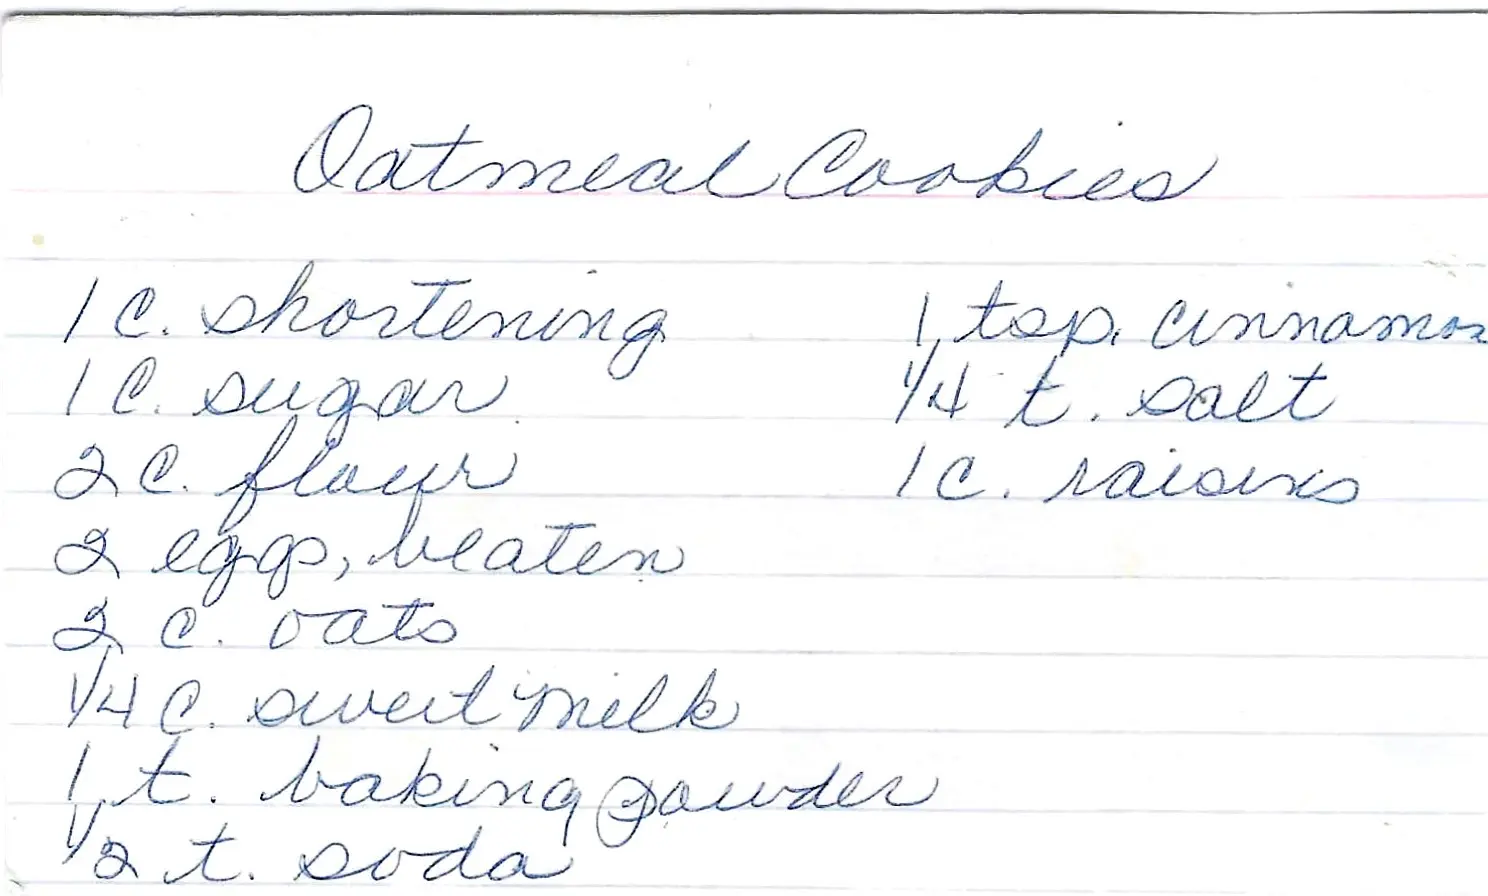 Oatmeal Cookies
1 c. shortening
1 c. sugar
2 c. flour
2 eggs, beaten
2 c. oats
1/4 c. sweet milk
1 t. baking powder
1/2 t. soda
1 tsp. cinnamon
1/4 t. salt
1 c. raisins